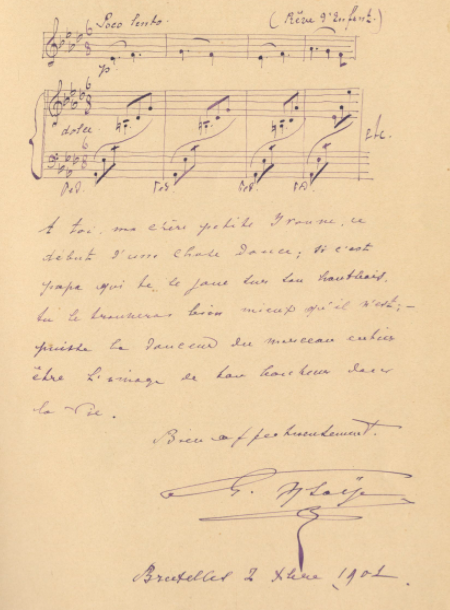 Poco lento. (Rêve d'Enfant.)
p
dolce.
etc.
Ped. Ped. Ped. Ped.
A toi, ma chère petite Yvonne, ce
début d'une chose douce; si c'est
papa qui te le joue sur son hautbois,
tu le trouveras bien mieux qu'il n'est; –
puisse la douceur du morceau entier
être l'image de ton bonheur dans
la Vie.
Bien affectueusement.
E. Ysaÿe
Bruxelles 2 Xbre 1901